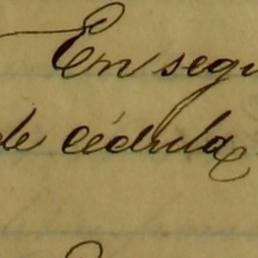 En segu
de cédula